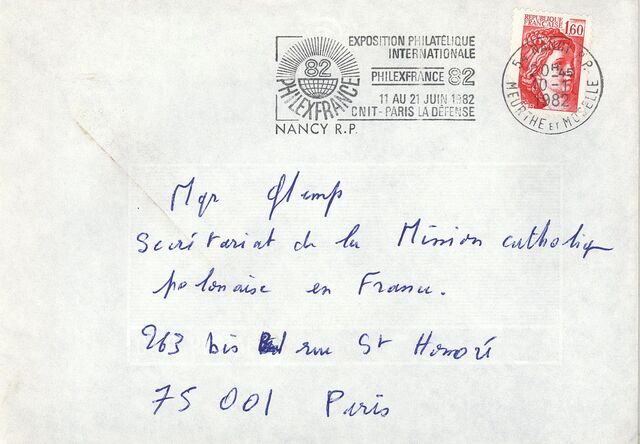 EXPOSITION PHILATÉLIQUE
INTERNATIONALE
PHILEXFRANCE 82
11 AU 21 JUIN 1982
CNIT-PARIS LA DÉFENSE
82
PHILEXFRANCE
NANCY R.P.
REPUBLIQUE
FRANÇAISE
1,60
54 NANCY R.P.
20H45
1982
MEURTHE ET MOSELLE
Mgr Glemp
Secrétariat de la Mission catholique
polonaise en France.
263 bis rue St Honoré
75 001 Paris